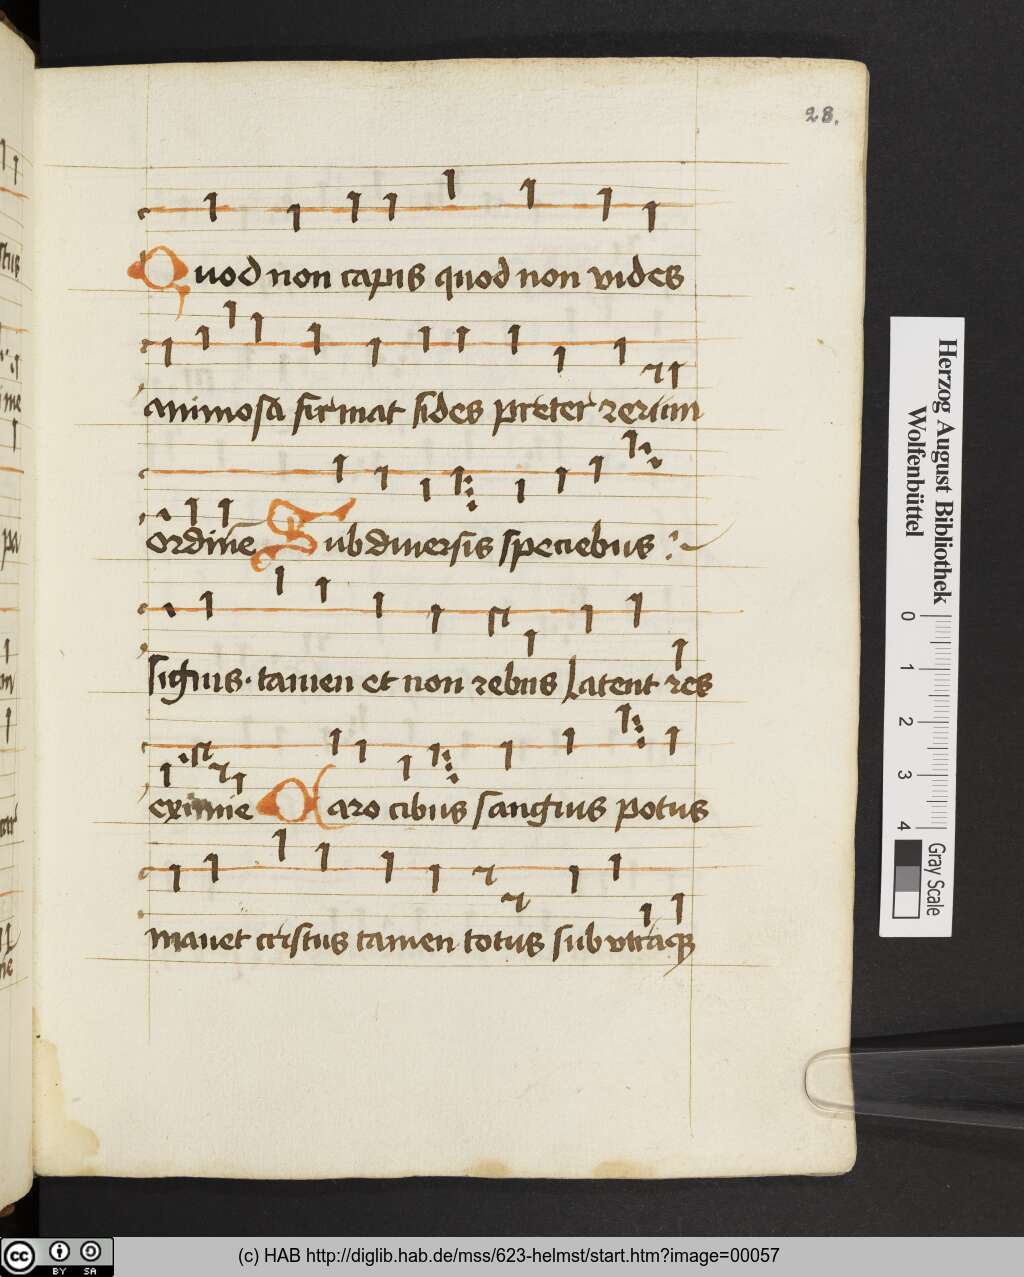 28.
Quod non capis quod non vides
animosa firmat fides preter rerum
ordinē Sub diuersis speciebus
signis · tamen et non rebus Latent res
eximie Caro cibus sangwis potus
manet cristus tamen totus sub vtraqꝫ
Herzog August Bibliothek
Wolfenbüttel
0 1 2 3 4
Gray Scale
cc BY SA
(c) HAB http://diglib.hab.de/mss/623-helmst/start.htm?image=00057